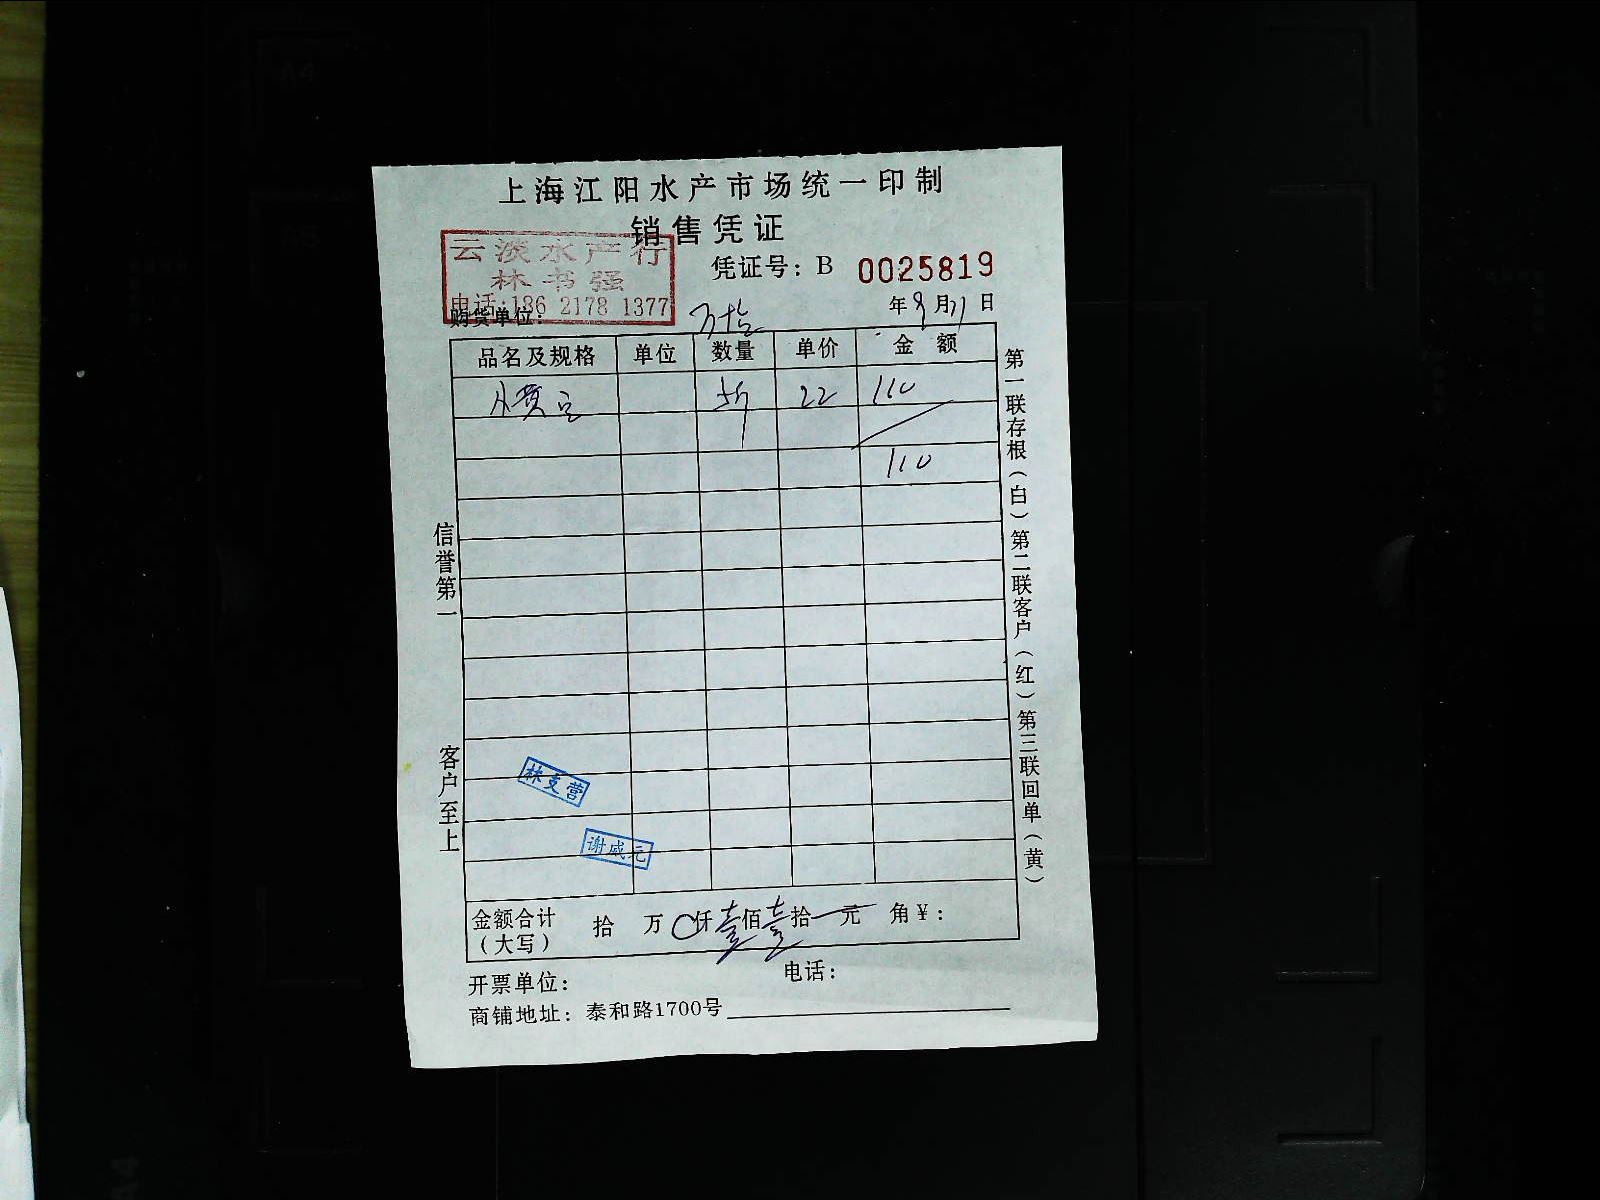 上海江阳水产市场统一印制
销售凭证
云淡水产行
林书强
电话:186 2178 1377
凭证号：B 0025819
购货单位：
年 9 月 日
品名及规格 单位 数量 单价 金额
小黄 22 110
110
信誉第一
客户至上
第一联存根（白）第二联客户（红）第三联回单（黄）
林支营
谢成元
金额合计（大写） 拾 万 仟壹佰壹拾 元 角￥：
开票单位： 电话：
商铺地址：泰和路1700号